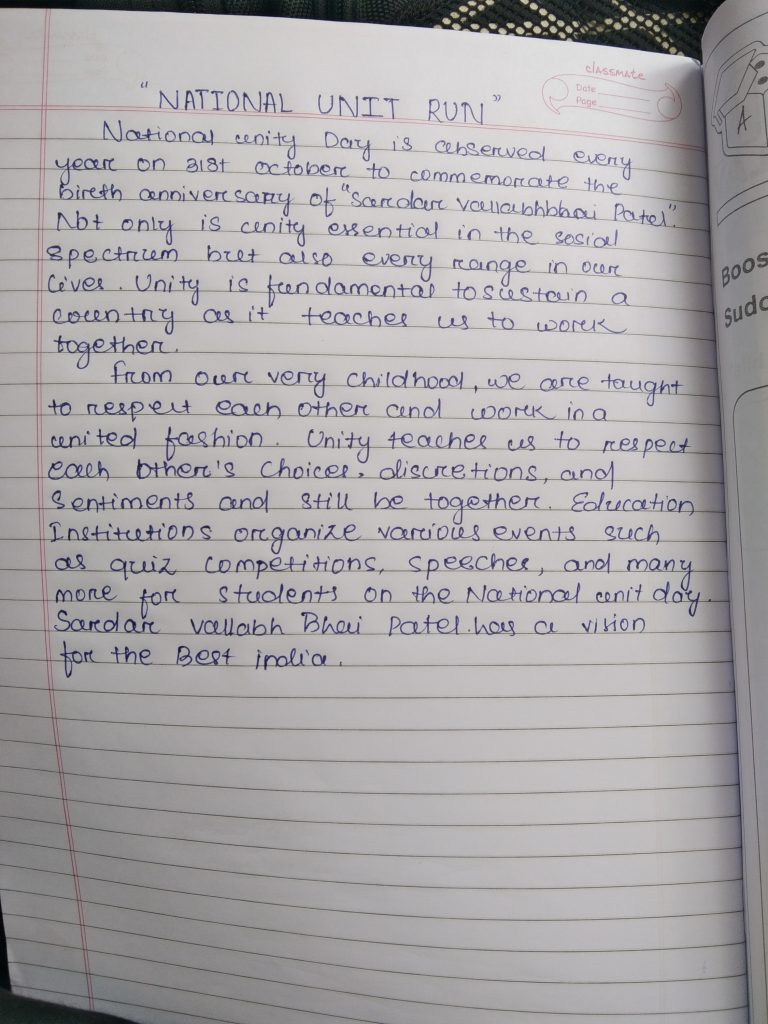 classmate
Date
Page
"NATIONAL UNIT RUN"
National unity Day is observed every
year on 31st october to commemorate the
birth anniversary of "Sardar vallabhbhai Patel".
Not only is unity essential in the sosial
spectrum but also every range in our
lives. Unity is fundamental to sustain a
country as it teaches us to work
together.
from our very childhood, we are taught
to respect each other and work in a
united fashion. Unity teaches us to respect
each other's choices, discretions, and
sentiments and still be together. Education
Institutions organize various events such
as quiz competitions, speeches, and many
more for students on the National unit day.
Sardar vallabh Bhai Patel. has a vision
for the Best india.
A
Boos
Sudo